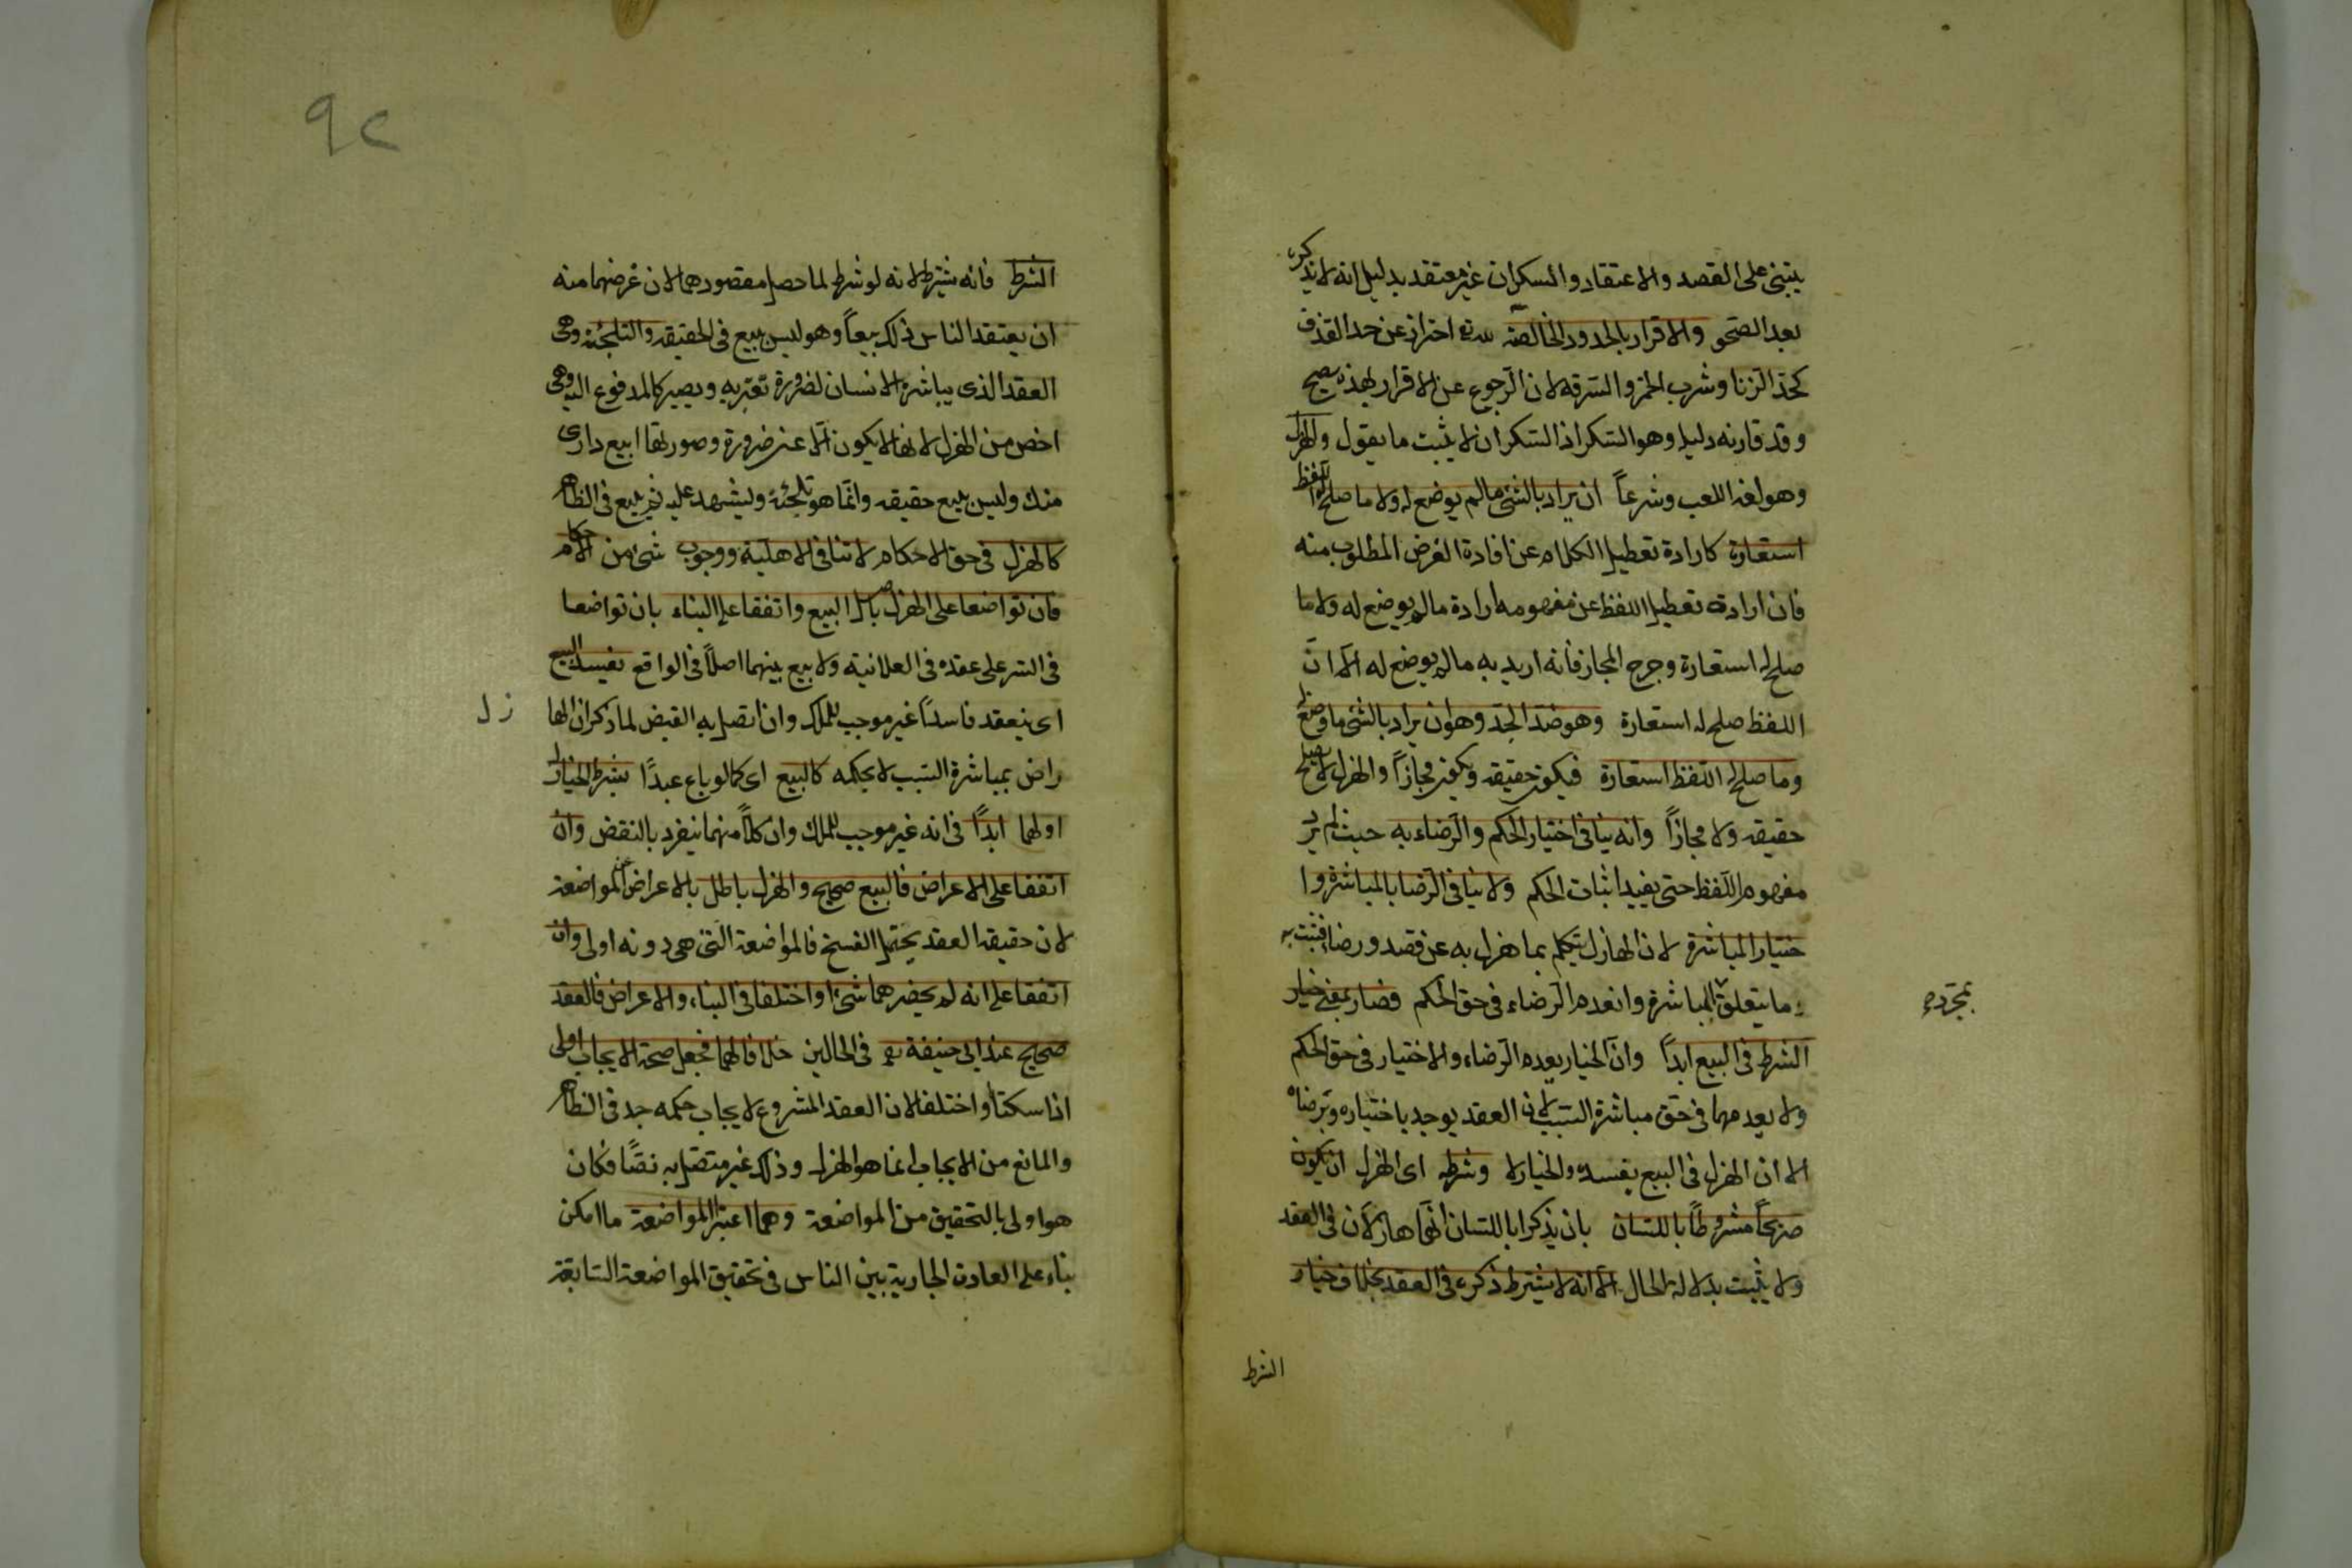 يبتنى على القصد والاعتقاد والسكران غير معتقد بدليل انه لا يذكره
بعد الصحو والاقرار بالحدود الخالصة لله تع احتراز عن حد القذف
كحد الزنا وشرب الخمر والسرقة لان الرجوع عن الاقرار بهذه يصح
وقد قارنه دليله وهو السكر اذ السكران لا يثبت ما يقول والهزل
وهو لغة اللعب وشرعاً ان يراد بالشئ ما لم يوضع له ولا ما صلح له اللفظ
استعارة كارادة تعطيل الكلام عن افادة الغرض المطلوب منه
فان ارادة تعطيل اللفظ عن مفهومه ارادة ما لم يوضع له ولا ما
صلح له استعارة وخرج المجاز فانه اريد به ما لم يوضع له الا ان
اللفظ صلح له استعارة وهو ضد الجد وهو ان يراد بالشئ ما وضع له
وما صلح له اللفظ استعارة فيكون حقيقة ويكون مجازاً والهزل لا يصلح
حقيقة ولا مجازاً وانه ينافى اختيار الحكم والرضاء به حيث لم يرد
مفهوم اللفظ حتى يفيد اثبات الحكم ولا ينافى الرضا بالمباشرة وا
ختيار المباشرة لان الهازل يتكلم بما هزل به عن قصد ورضا فثبت به
ما يتعلق بالمباشرة وانعدم الرضاء فى حق الحكم فصار بمعنى خيار
بمجرده
الشرط فى البيع ابداً وان الخيار يعدم الرضاء والاختيار فى حق الحكم
ولا يعدمهما فى حق مباشرة السبب لان العقد يوجد باختياره وبرضاه
الا ان الهزل فى البيع يفسده والخيار لا وشرطه اى الهزل ان يكون
صريحاً مشروطاً باللسان بان يذكرا باللسان انهما هازلان فى العقد
ولا يثبت بدلالة الحال الا انه لا يشترط ذكره فى العقد بخلاف خيار
الشرط
٩٢
الشرط فانه يشترط لانه لو شرط لما حصل مقصودهما لان غرضهما منه
ان يعتقد الناس ذلك بيعاً وهو ليس ببيع فى الحقيقة والتلجئة وهى
العقد الذى يباشره الانسان لضرورة تعتريه ويصير كالمدفوع اليه وهى
اخص من الهزل لانها لا يكون الا عن ضرورة وصورتها ابيع دارى
منك وليس ببيع حقيقة وانما هو تلجئة وليشهد عليه ثم يبيع فى الظاهر
كالهزل فى حق الاحكام لا تنافى الاهلية ووجوب شئ من الاحكام
فان تواضعا على الهزل باصل البيع واتفقا على البناء بان تواضعا
فى السر على عقده فى العلانية ولا بيع بينهما اصلاً فى الواقع يفسد البيع
اى ينعقد فاسداً غير موجب للملك وان اتصل به القبض لما ذكر ان الها
زل
راض بمباشرة السبب لا بحكمه كالبيع اى كما لو باع عبداً بشرط الخيار له
او لهما ابداً فى انه غير موجب للملك وان كلاً منهما ينفرد بالنقض وان
اتفقا على الاعراض فالبيع صحيح والهزل باطل بالاعراض عن المواضعة
لان حقيقة العقد يحتمل الفسخ فالمواضعة التى هى دونه اولى وان
اتفقا على انه لم يحضرهما شئ او اختلفا فى البناء والاعراض فالعقد
صحيح عند ابى حنيفة رح فى الحالين خلافا لهما فجعل صحة الايجاب اولى
اذا سكتا او اختلفا لان العقد المشروع لايجاب حكمه جد فى الظاهر
والمانع من الايجاب انما هو الهزل وذلك غير متصل به نصاً فكان
هو اولى بالتحقيق من المواضعة وهما اعتبرا المواضعة ما امكن
بناء على العادة الجارية بين الناس فى تحقيق المواضعة السابقة